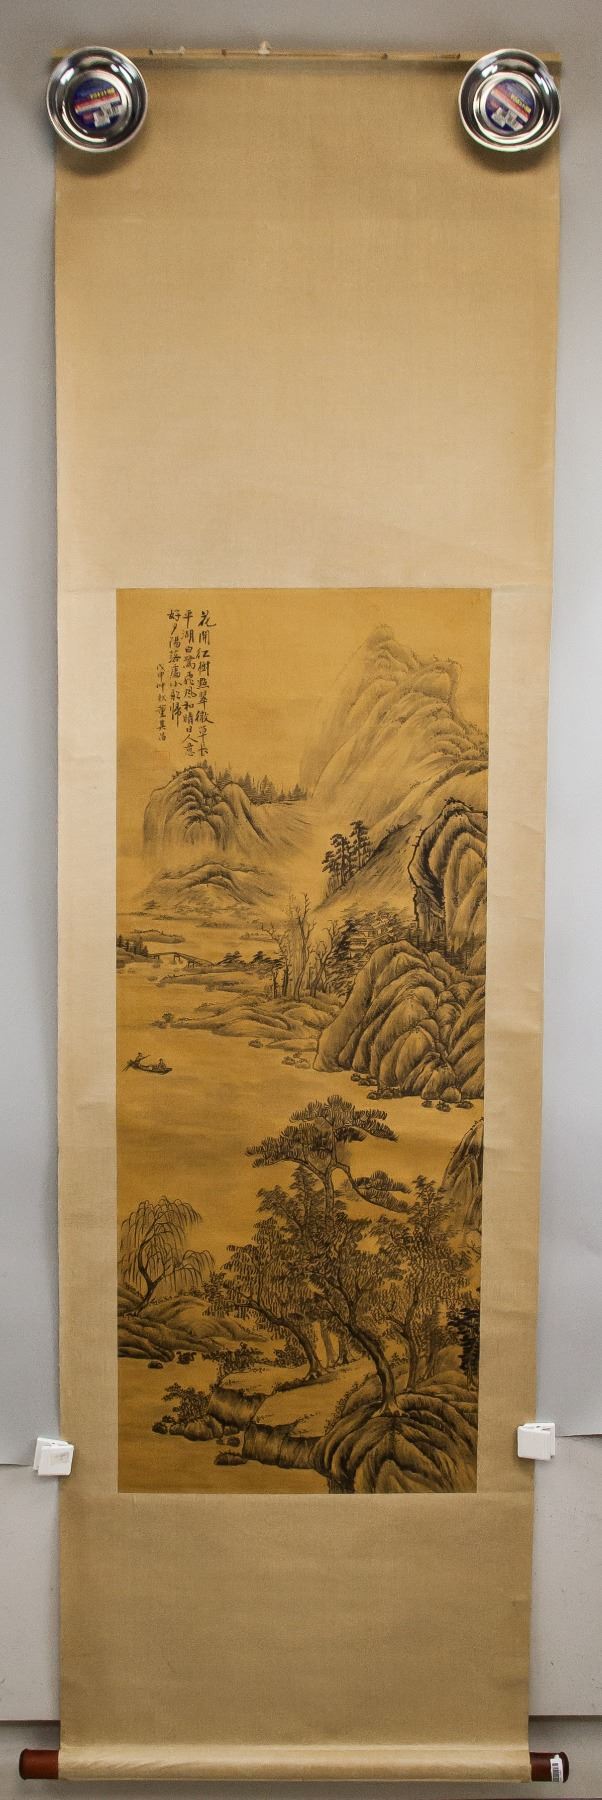 花開紅樹點翠微草長
平湖白鷺飛風和晴日人意
好夕陽簫鼓小船歸
戊申仲秋董其昌